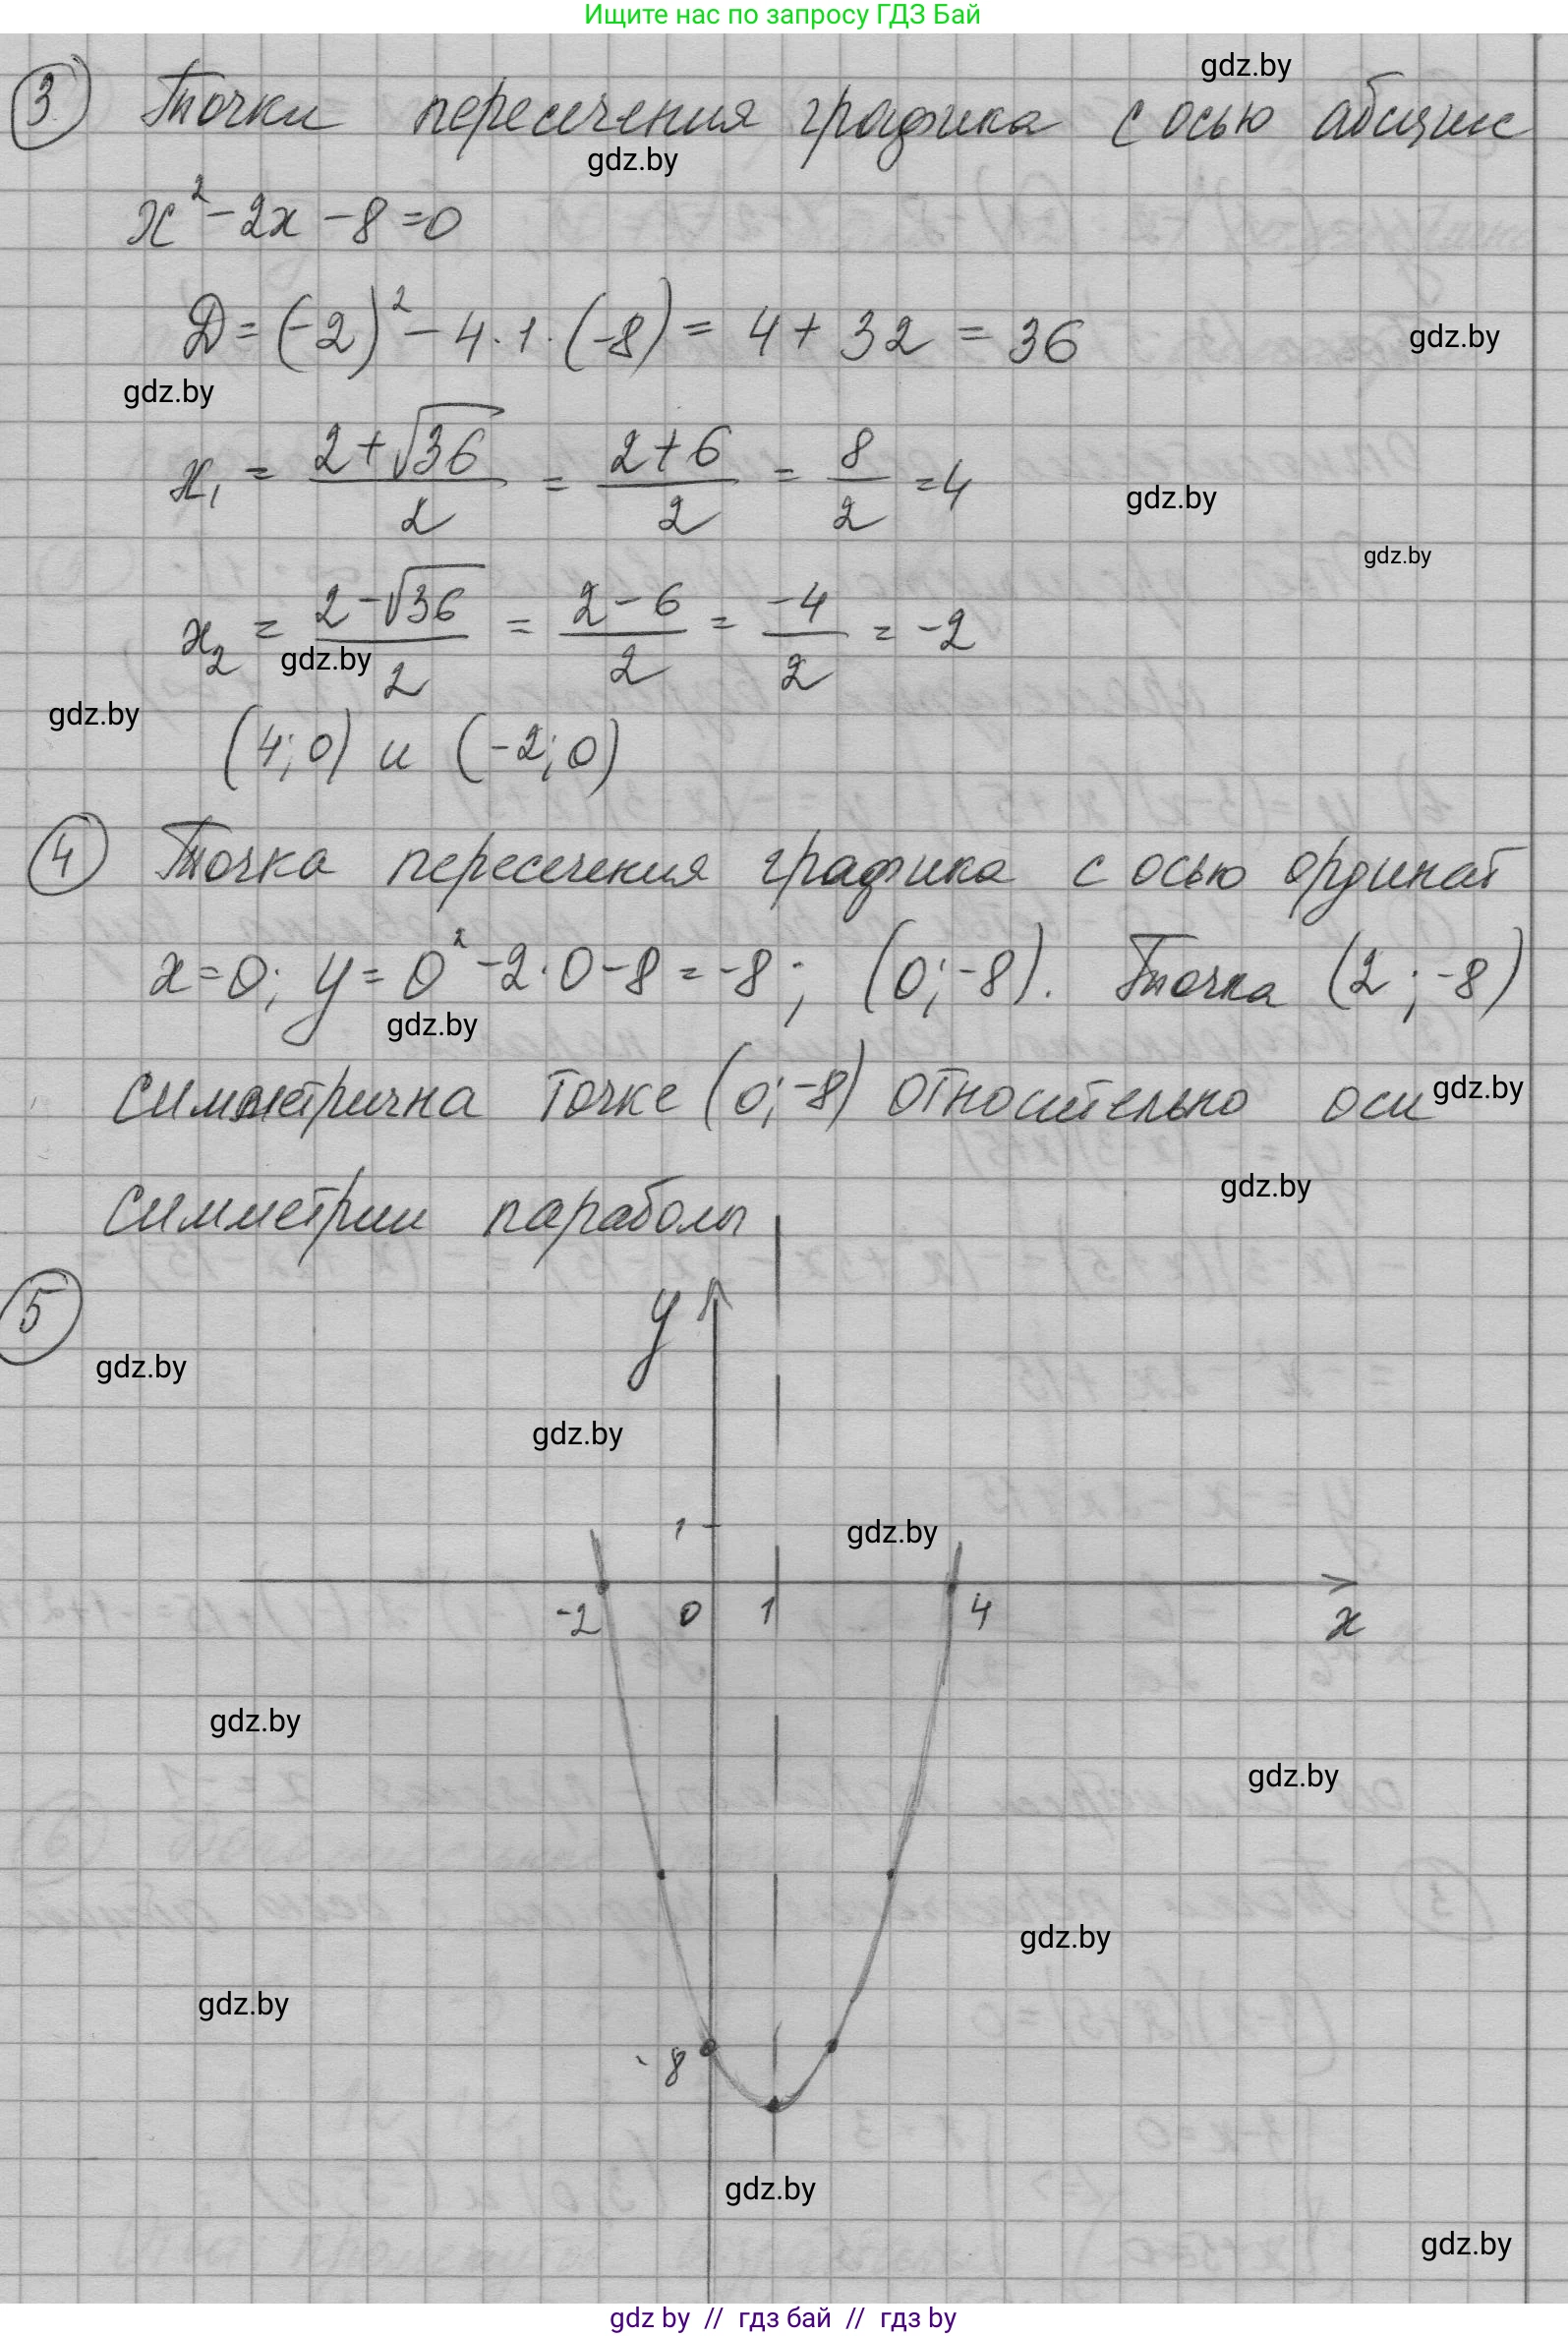 Ищите нас по запросу ГДЗ Бай
gdz.by
③ Точки пересечения графика с осью абсцисс
gdz.by
x² - 2x - 8 = 0
D = (-2)² - 4·1·(-8) = 4 + 32 = 36
gdz.by
gdz.by
x₁ = (2+√36)/2 = (2+6)/2 = 8/2 = 4
gdz.by
gdz.by
x₂ = (2-√36)/2 = (2-6)/2 = -4/2 = -2
gdz.by
gdz.by
(4; 0) и (-2; 0)
④ Точка пересечения графика с осью ординат
x = 0; y = 0² - 2·0 - 8 = -8; (0; -8). Точка (2; -8)
gdz.by
симметрична точке (0; -8) относительно оси
gdz.by
gdz.by
симметрии параболы
⑤
y
gdz.by
gdz.by
1
gdz.by
-2 0 1 4 x
gdz.by
gdz.by
gdz.by
gdz.by
-8
gdz.by
gdz.by
gdz by // гдз бай // гдз by